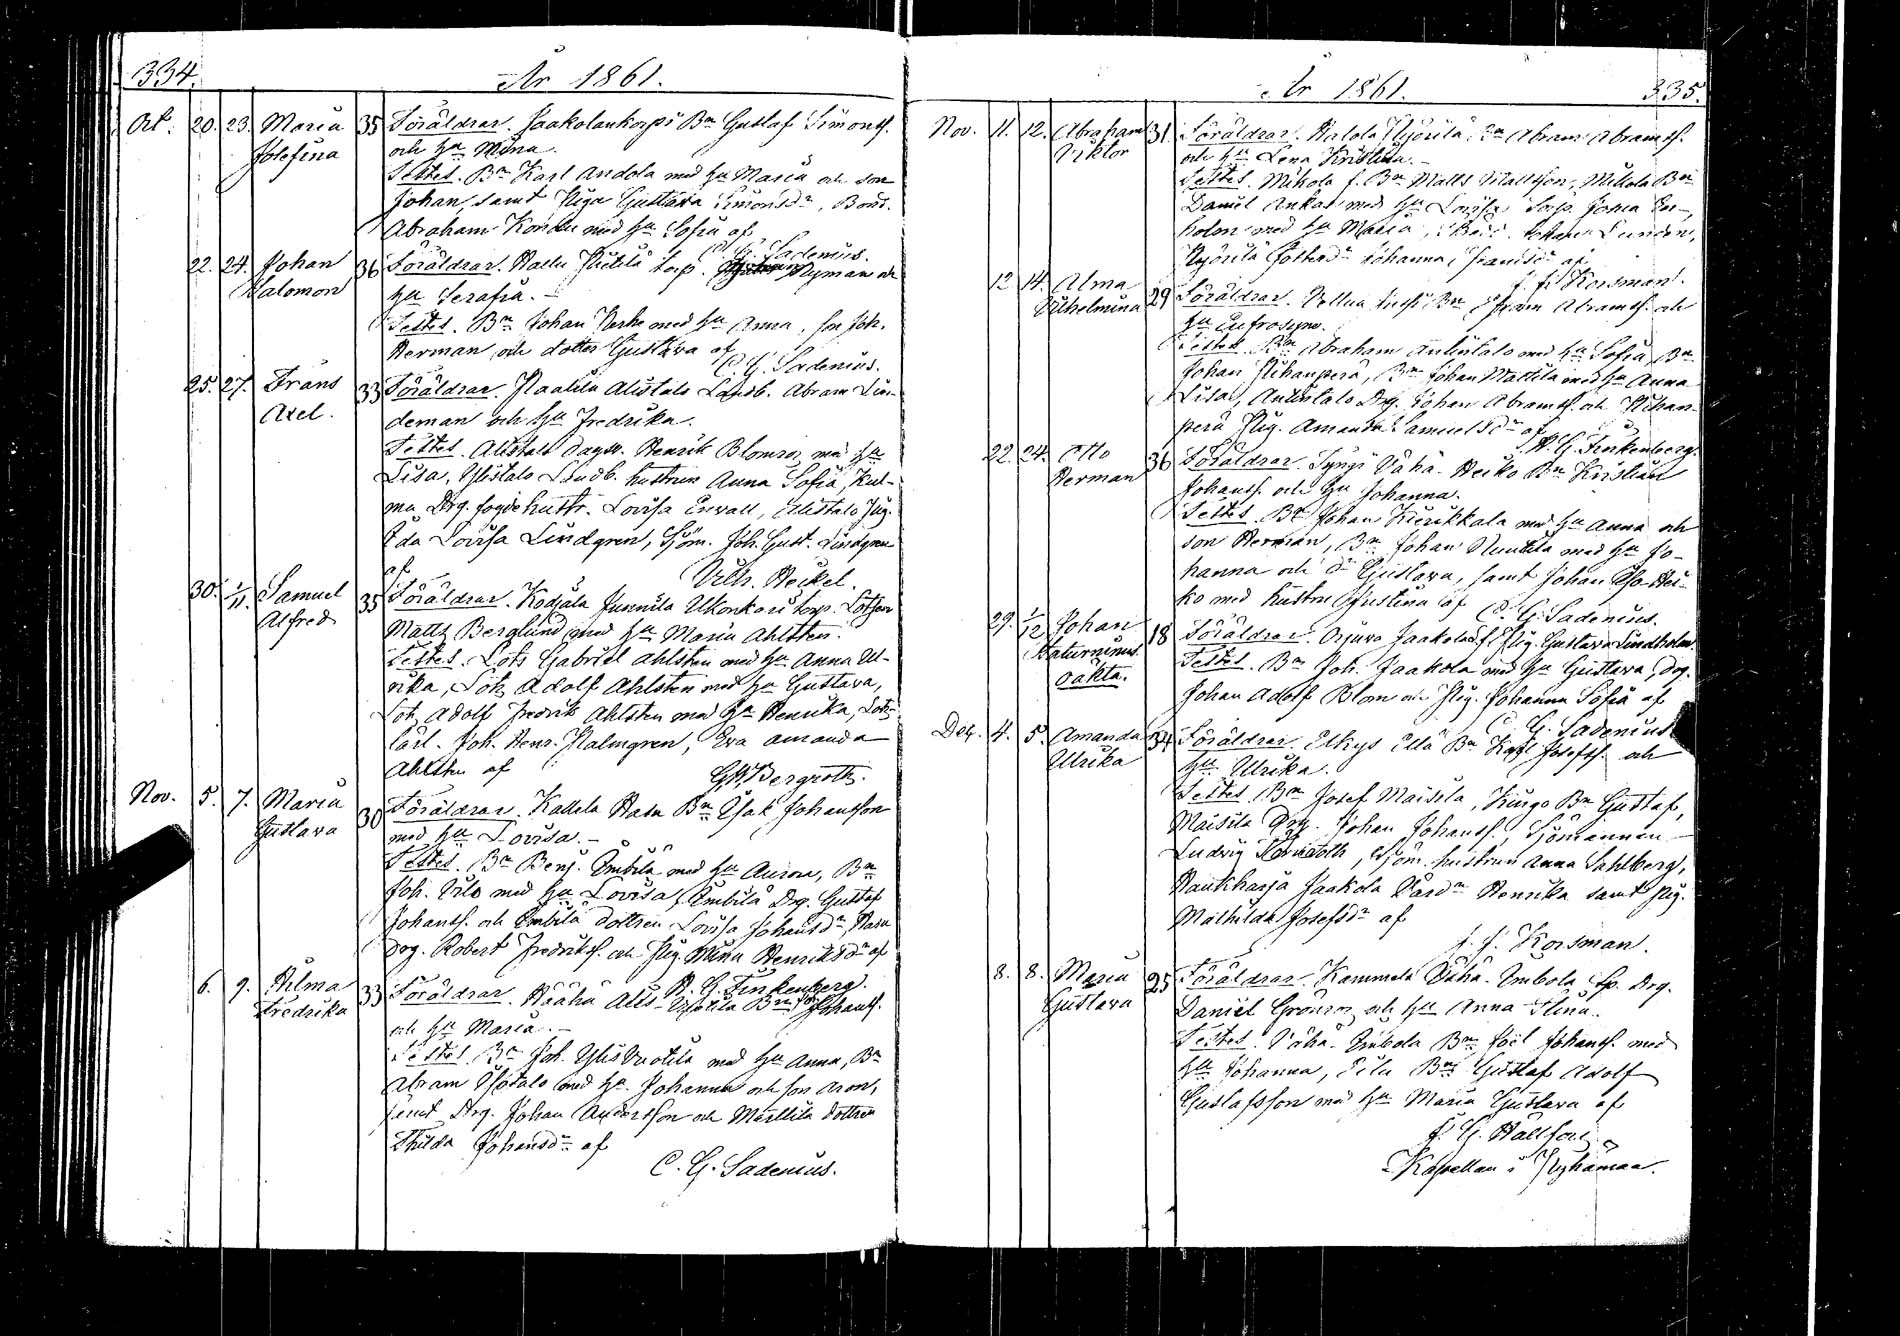 334.
År 1861.
Oct. 20. 23. Maria Josefina 35 Föräldrar. Jaakolankorpi Bn Gustaf Simonss.
och hu Mina.
Testes. Bn Karl Andola med hu Maria och son
Johan, samt Piga Gustava Simonsdr, Bond.
Abraham med hu Sofia af
C. G. Sadenius.
22. 24. Johan Salomon 36 Föräldrar. Torp. Nyman och
hu Serafia.
Testes. Bn Johan med hu Anna, son Joh.
Herman och dotter Gustava af
C. G. Sadenius.
25. 27. Frans Axel. 33 Föräldrar. Alistalo Landb. Abram Lin-
deman och hu Fredrika.
Testes. Alistalo Dagsk. Henrik Blomros med hu
Lisa, Ylistalo Landb. hustrun Anna Sofia,
Drg. fogdehustr. Lovisa Envall, Alistalo Pig.
Ida Lovisa Lindgren, Sjöm. Joh. Gust. Lindgren
af
Vilh. Heikel.
30. 1/11. Samuel Alfred 35 Föräldrar. Kodjala Junnila Ukonkari torp. Lotsen
Matts Berglund med hu Maria Ahlsten.
Testes. Lots Gabriel Ahlsten med hu Anna Ul-
rika, Lots Adolf Ahlsten med hu Gustava,
Lots Adolf Fredrik Ahlsten med hu Henrika, Lots-
lärl. Joh. Henr. Malmgren, Eva Amanda
Ahlsten af
Bergroth.
Nov. 5. 7. Maria Gustava 30 Föräldrar. Kallela Bn Isak Johansson
med hu Lovisa.
Testes. Bn Benj. Imbilä med hu Aurora, Bn
Joh. med hu Lovisa, Imbilä Drg. Gustaf
Johanss. och Imbilä dottren Lovisa Johansdr,
Drg. Robert Fredrikss. och Pig. Henriksdr af
H. G. Finkenberg.
6. 9. Hilma Fredrika 33 Föräldrar. Bn Johanss.
och hu Maria.
Testes. Bn Joh. med hu Anna, Bn
Abram Isotalo med hu Johanna och son Aron,
samt Drg. Johan Andersson och Marttila dottren
Thilda Johansdr af
C. G. Sadenius.
År 1861.
335.
Nov. 11. 12. Abraham Viktor 31 Föräldrar. Bn Abram Abramss.
och hu Lena Kristina.
Testes. Mikola f. Bn Matts Mattsson, Mikola Bn
Daniel med hu Lovisa, Torp.
med hu Maria, Lunden,
Johanna Fransdr af
Korsman.
12 14. Alma Vilhelmina 29 Föräldrar. Bn Abramss. och
hu Eufrosyne.
Testes. Bn Abraham Anttitalo med hu Sofia, Bn
Johan, Bn Johan Mattila med hu Anna
Lisa, Anttitalo Drg. Johan Abramss. och
perä Pig. Amanda Samuelsdr af
H. G. Finkenberg.
22. 24. Otto Herman 36 Föräldrar. Vähä-Heiko Bn Kristian
Johanss. och hu Johanna.
Testes. Bn Johan Kierikkala med hu Anna och
son Herman, Bn Johan Nuutila med hu Jo-
hanna och dr Gustava, samt Johan Iso-Hei-
ko med hustru Justina af C. G. Sadenius.
29. 1/12 Johan Saturninus. oäkta. 18 Föräldrar. Jaakola Pig. Gustava Lindholm.
Testes. Bn Joh. Jaakola med hu Gustava, Drg.
Johan Adolf Blom och Pig. Johanna Sofia af
C. G. Sadenius
Dec. 4. 5. Amanda Ulrika 34 Föräldrar. Elkys Bn Karl Josefss. och
hu Ulrika.
Testes. Bn Josef Maisila, Bn Gustaf,
Maisila Drg. Johan Johanss., Sjömannen
Ludvig, Sjöm. hustrun Anna Sahlberg,
Haukharja Jaakola Värdn Henrika samt Pig.
Mathilda Josefsdr af
Korsman.
8. 8. Maria Gustava 25 Föräldrar. Kammela Vähä-Imbola Sp. Drg.
Daniel Grönroos och hu Anna Stina.
Testes. Vähä-Imbola Bn Joel Johanss. med
hu Johanna, Bn Gustaf Adolf
Gustafsson med hu Maria Gustava af
Hallfors
Kapellan i Pyhämaa.